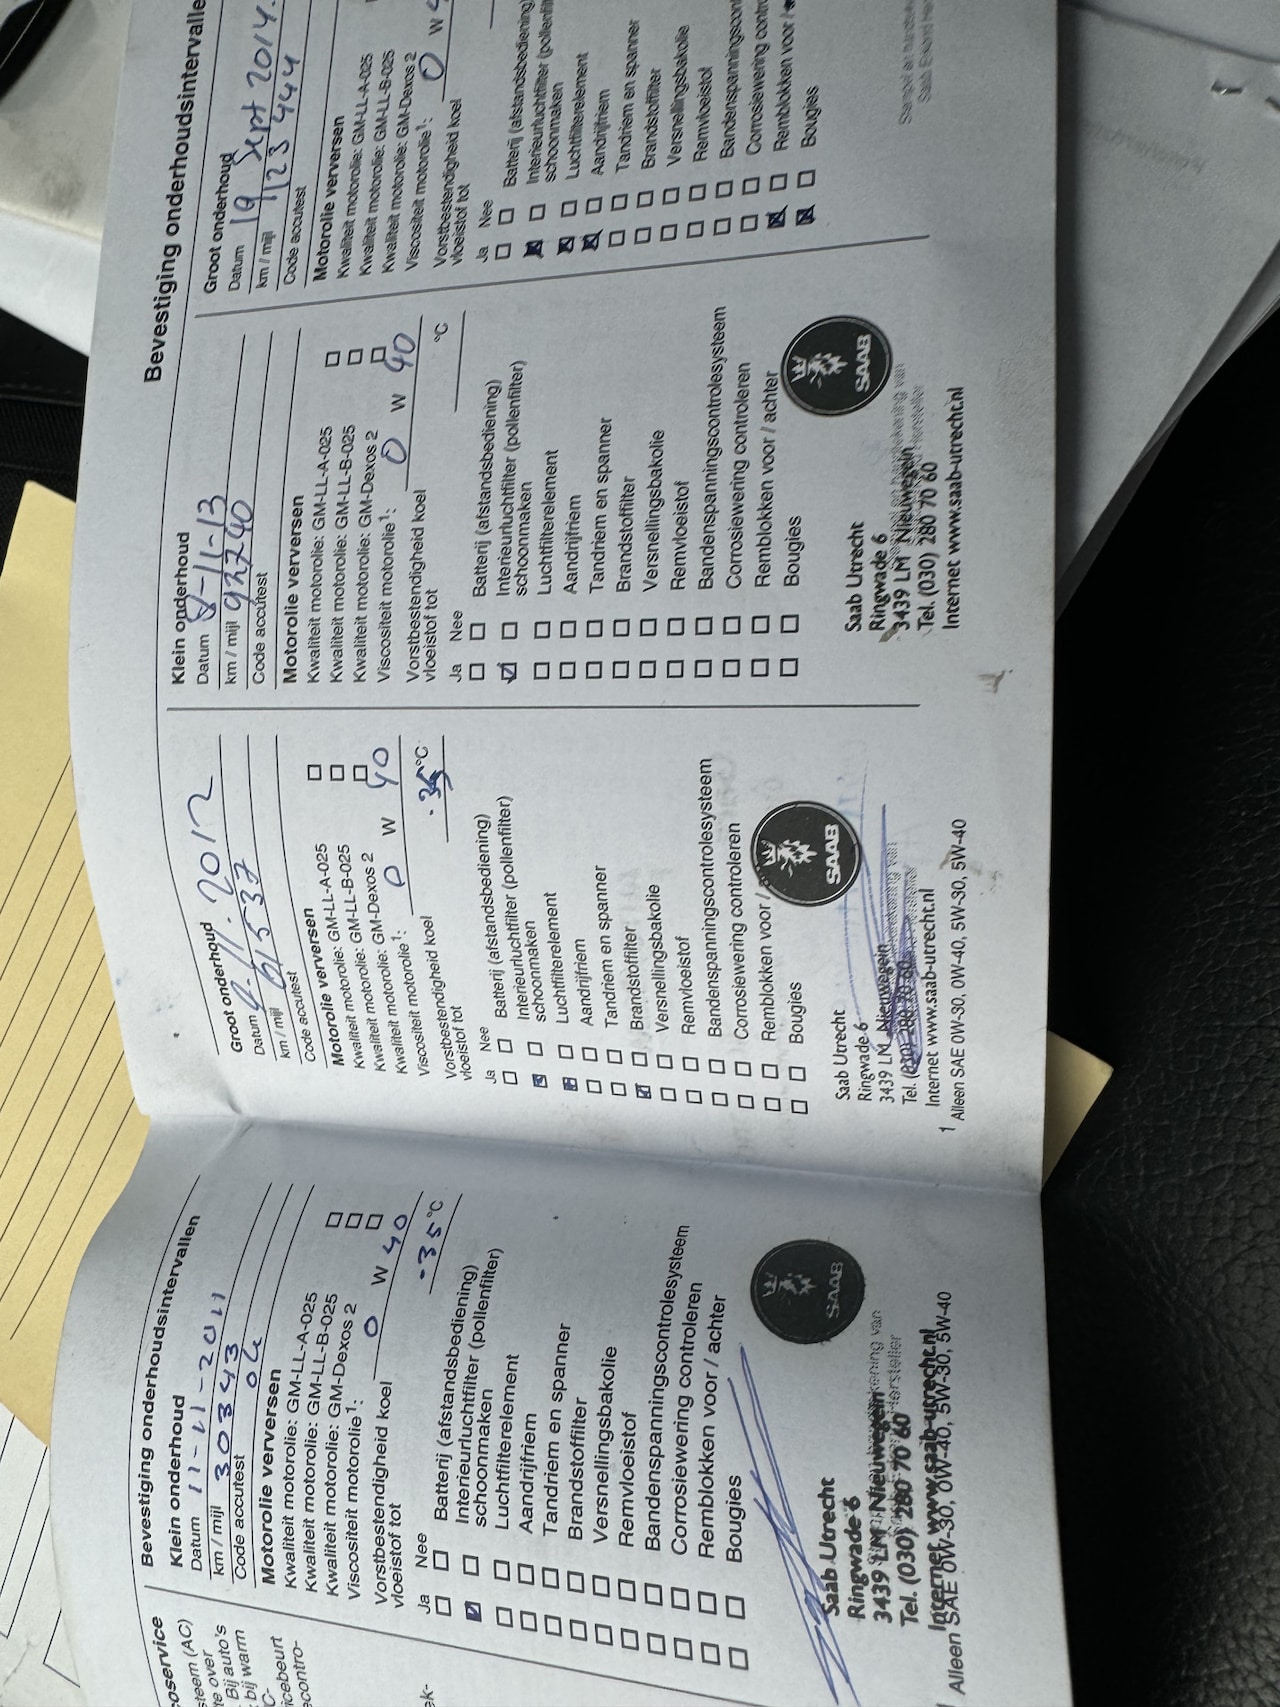 oservice
steem (AC)
te over
Bij auto's
bij warm
C-
icebeurt
econtro-
ek-
Bevestiging onderhoudsintervallen
Klein onderhoud
Datum 11-11-2011
km / mijl 30343
Code accutest 06
Motorolie verversen
Kwaliteit motorolie: GM-LL-A-025
Kwaliteit motorolie: GM-LL-B-025
Kwaliteit motorolie: GM-Dexos 2
Viscositeit motorolie¹: 0 W 40
Vorstbestendigheid koel
vloeistof tot -35 °C
Ja Nee
Batterij (afstandsbediening)
Interieurluchtfilter (pollenfilter)
schoonmaken
Luchtfilterelement
Aandrijfriem
Tandriem en spanner
Brandstoffilter
Versnellingsbakolie
Remvloeistof
Bandenspanningscontrolesysteem
Corrosiewering controleren
Remblokken voor / achter
Bougies
SAAB
Saab Utrecht
Ringwade 6
3439 LM Nieuwegein
Tel. (030) 280 70 60
Internet www.saab-utrecht.nl
Alleen SAE 0W-30, 0W-40, 5W-30, 5W-40
Groot onderhoud
Datum 9-11-2012
km / mijl 61537
Code accutest
Motorolie verversen
Kwaliteit motorolie: GM-LL-A-025
Kwaliteit motorolie: GM-LL-B-025
Kwaliteit motorolie: GM-Dexos 2
Viscositeit motorolie¹: 0 W 40
Vorstbestendigheid koel
vloeistof tot -35 °C
Ja Nee
Batterij (afstandsbediening)
Interieurluchtfilter (pollenfilter)
schoonmaken
Luchtfilterelement
Aandrijfriem
Tandriem en spanner
Brandstoffilter
Versnellingsbakolie
Remvloeistof
Bandenspanningscontrolesysteem
Corrosiewering controleren
Remblokken voor /
Bougies
SAAB
Saab Utrecht
Ringwade 6
3439 LM Nieuwegein
Tel. (030) 280 70 60
Internet www.saab-utrecht.nl
1 Alleen SAE 0W-30, 0W-40, 5W-30, 5W-40
Bevestiging onderhoudsintervalle
Klein onderhoud
Datum 8-11-13
km / mijl 93740
Code accutest
Motorolie verversen
Kwaliteit motorolie: GM-LL-A-025
Kwaliteit motorolie: GM-LL-B-025
Kwaliteit motorolie: GM-Dexos 2
Viscositeit motorolie¹: 0 W 40
Vorstbestendigheid koel
vloeistof tot °C
Ja Nee
Batterij (afstandsbediening)
Interieurluchtfilter (pollenfilter)
schoonmaken
Luchtfilterelement
Aandrijfriem
Tandriem en spanner
Brandstoffilter
Versnellingsbakolie
Remvloeistof
Bandenspanningscontrolesysteem
Corrosiewering controleren
Remblokken voor / achter
Bougies
SAAB
Saab Utrecht
Ringwade 6
3439 LM Nieuwegein
Tel. (030) 280 70 60
Internet www.saab-utrecht.nl
Groot onderhoud
Datum 19 Sept 2014.
km / mijl 123444
Code accutest
Motorolie verversen
Kwaliteit motorolie: GM-LL-A-025
Kwaliteit motorolie: GM-LL-B-025
Kwaliteit motorolie: GM-Dexos 2
Viscositeit motorolie¹: 0 W
Vorstbestendigheid koel
vloeistof tot
Ja Nee
Batterij (afstandsbediening)
Interieurluchtfilter (pollenfilt
schoonmaken
Luchtfilterelement
Aandrijfriem
Tandriem en spanner
Brandstoffilter
Versnellingsbakolie
Remvloeistof
Bandenspanningscon
Corrosiewering contr
Remblokken voor /
Bougies